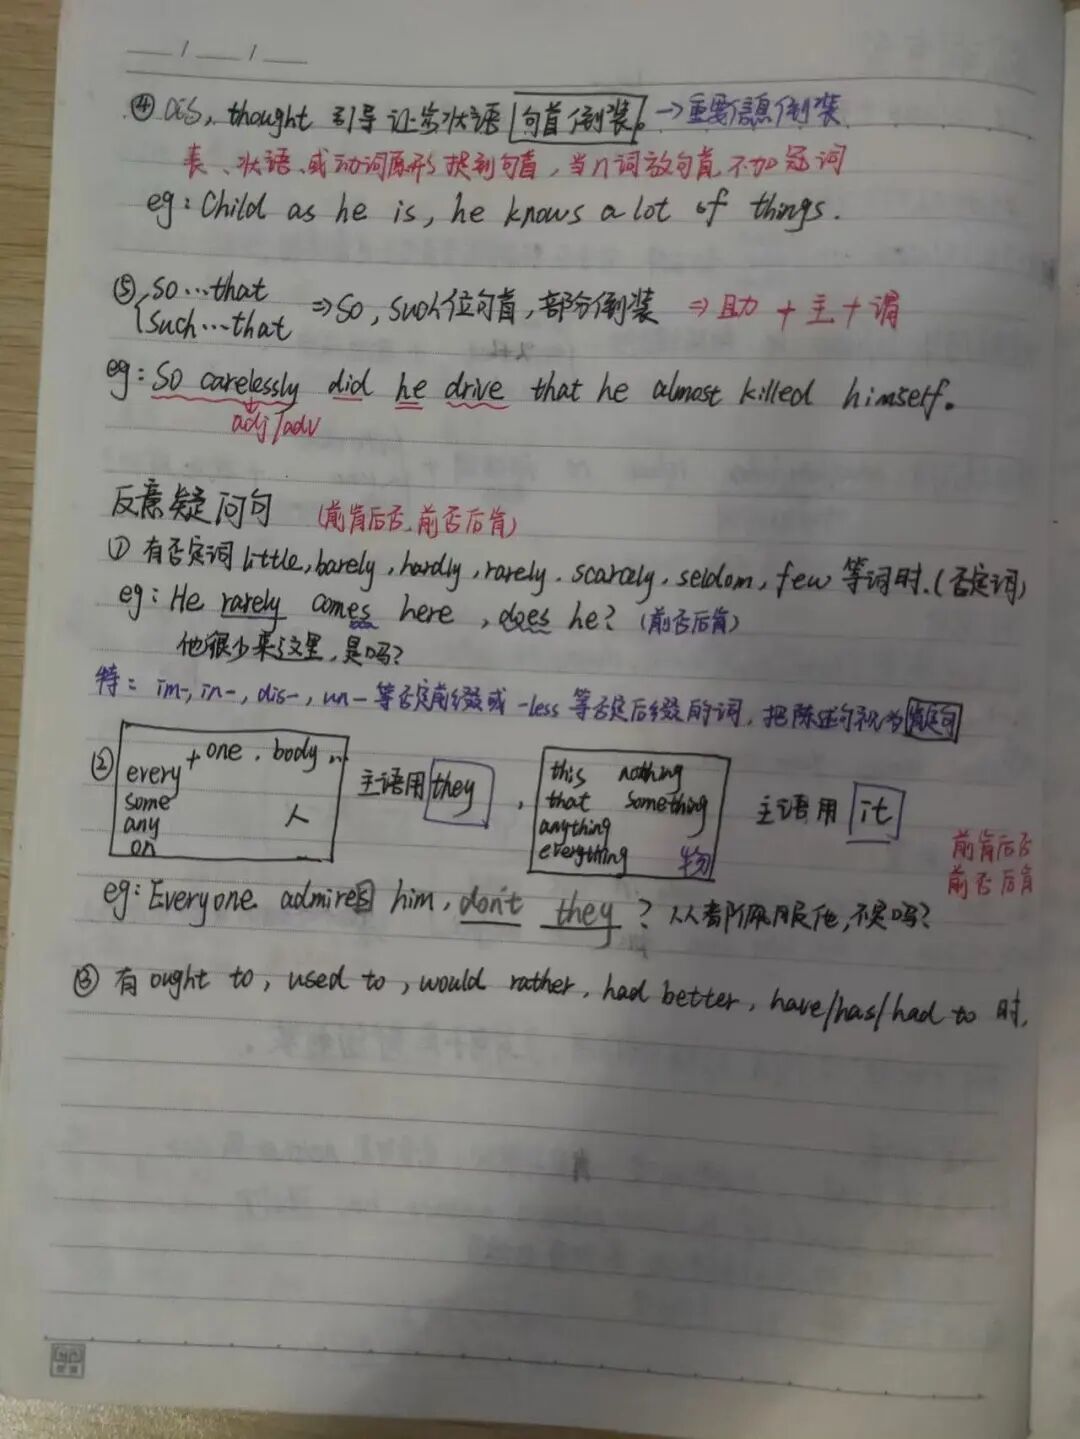 / /
④ as, thought 引导让步状语 句首倒装。→重要信息倒装
表、状语、或动词原形提到句首,当n词放句首,不加冠词
eg: Child as he is, he knows a lot of things.
⑤ so…that
such…that ⇒So, such位句首,部分倒装 ⇒ 助 + 主 + 谓
eg: So carelessly did he drive that he almost killed himself.
adj/adv
反意疑问句 (前肯后否,前否后肯)
① 有否定词 little, barely, hardly, rarely, scarcely, seldom, few 等词时.(否定词)
eg: He rarely comes here, does he? (前否后肯)
他很少来这里,是吗?
特: im-, in-, dis-, un- 等否定前缀或 -less 等否定后缀的词,把陈述句视为肯定句
② every + one . body …
some
any 人
on
主语用 they ,
this nothing
that something
anything
everything 物
主语用 it
前肯后否
前否后肯
eg: Everyone admires him, don't they? 人人都佩服他,不是吗?
③ 有 ought to, used to, would rather, had better, have/has/had to 时,